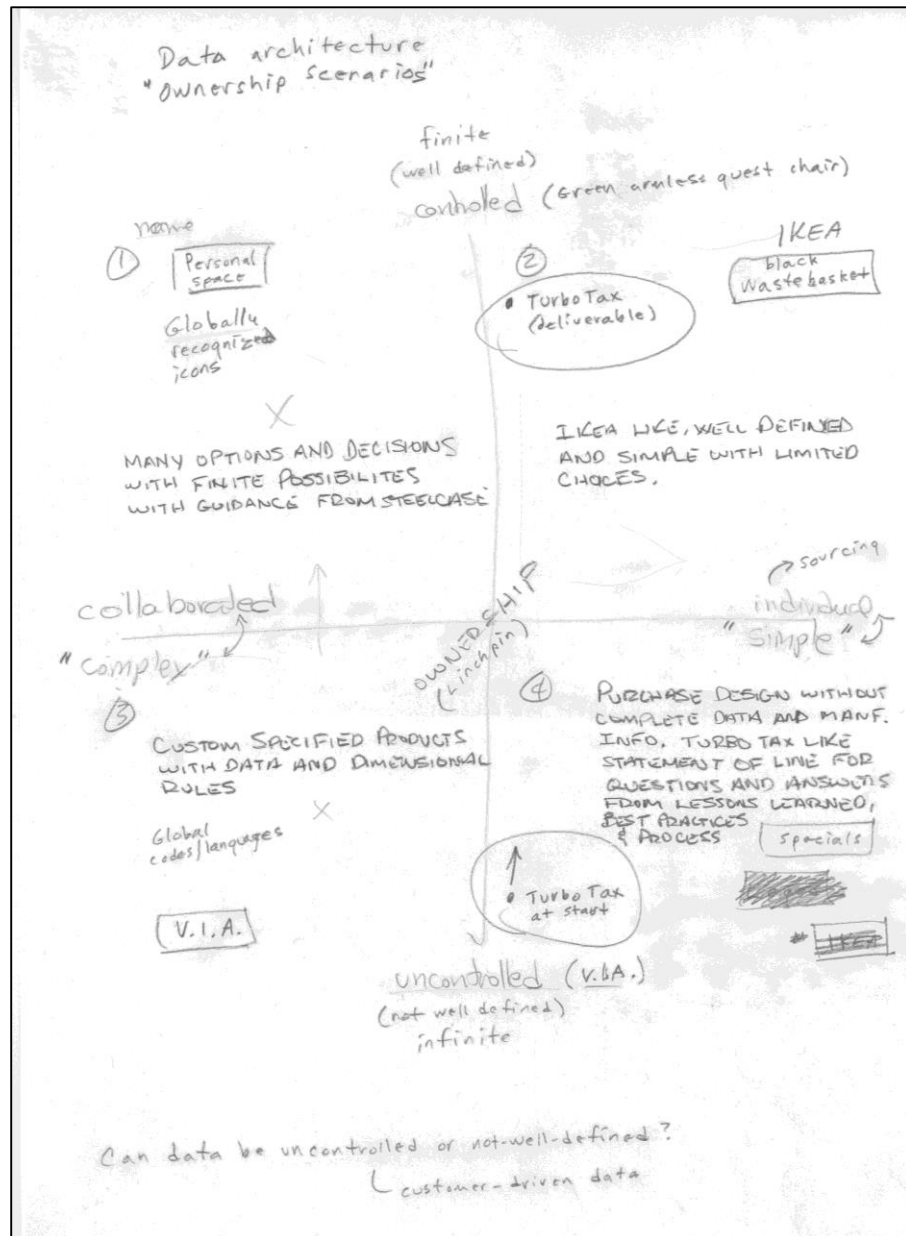 Data architecture
"Ownership Scenarios"
finite
(well defined)
controlled (Green armless guest chair)
name
①
Personal
space
Globally
recognized
icons
X
MANY OPTIONS AND DECISIONS
WITH FINITE POSSIBILITES
WITH GUIDANCE FROM STEELCASE
②
IKEA
black
wastebasket
• TurboTax
(deliverable)
IKEA LIKE, WELL DEFINED
AND SIMPLE WITH LIMITED
CHOICES.
sourcing
collaborated
individual
"complex"
"simple"
OWNERSHIP
(Linchpin)
③
CUSTOM SPECIFIED PRODUCTS
WITH DATA AND DIMENSIONAL
RULES
X
Global
codes/languages
V.I.A.
④
PURCHASE DESIGN WITHOUT
COMPLETE DATA AND MANF.
INFO. TURBO TAX LIKE
STATEMENT OF LINE FOR
QUESTIONS AND ANSWERS
FROM LESSONS LEARNED,
BEST PRACTICES
& PROCESS
specials
• TurboTax
at start
* IKEA
uncontrolled (V.I.A.)
(not well defined)
infinite
Can data be uncontrolled or not-well-defined?
customer-driven data